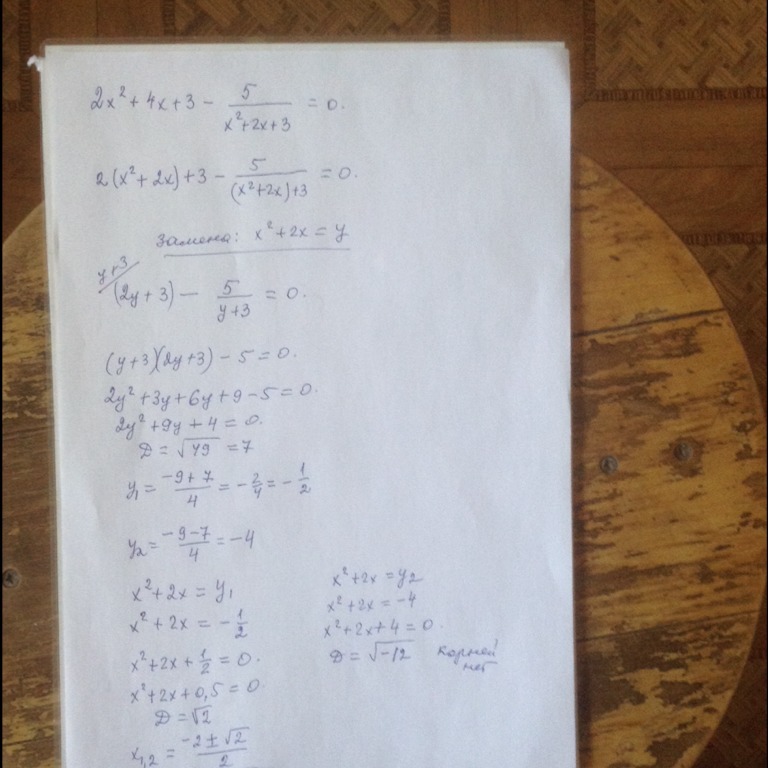 2x² + 4x + 3 - 5/(x²+2x+3) = 0.
2(x² + 2x) + 3 - 5/((x²+2x)+3) = 0.
замена: x² + 2x = y
y+3
(2y+3) - 5/(y+3) = 0.
(y+3)(2y+3) - 5 = 0.
2y² + 3y + 6y + 9 - 5 = 0.
2y² + 9y + 4 = 0.
D = √49 = 7
y₁ = (-9+7)/4 = -2/4 = -1/2
y₂ = (-9-7)/4 = -4
x² + 2x = y₁
x² + 2x = -1/2
x² + 2x + 1/2 = 0.
x² + 2x + 0,5 = 0
D = √2
x₁,₂ = (-2 ± √2)/2
x² + 2x = y₂
x² + 2x = -4
x² + 2x + 4 = 0.
D = √-12 корней
нет